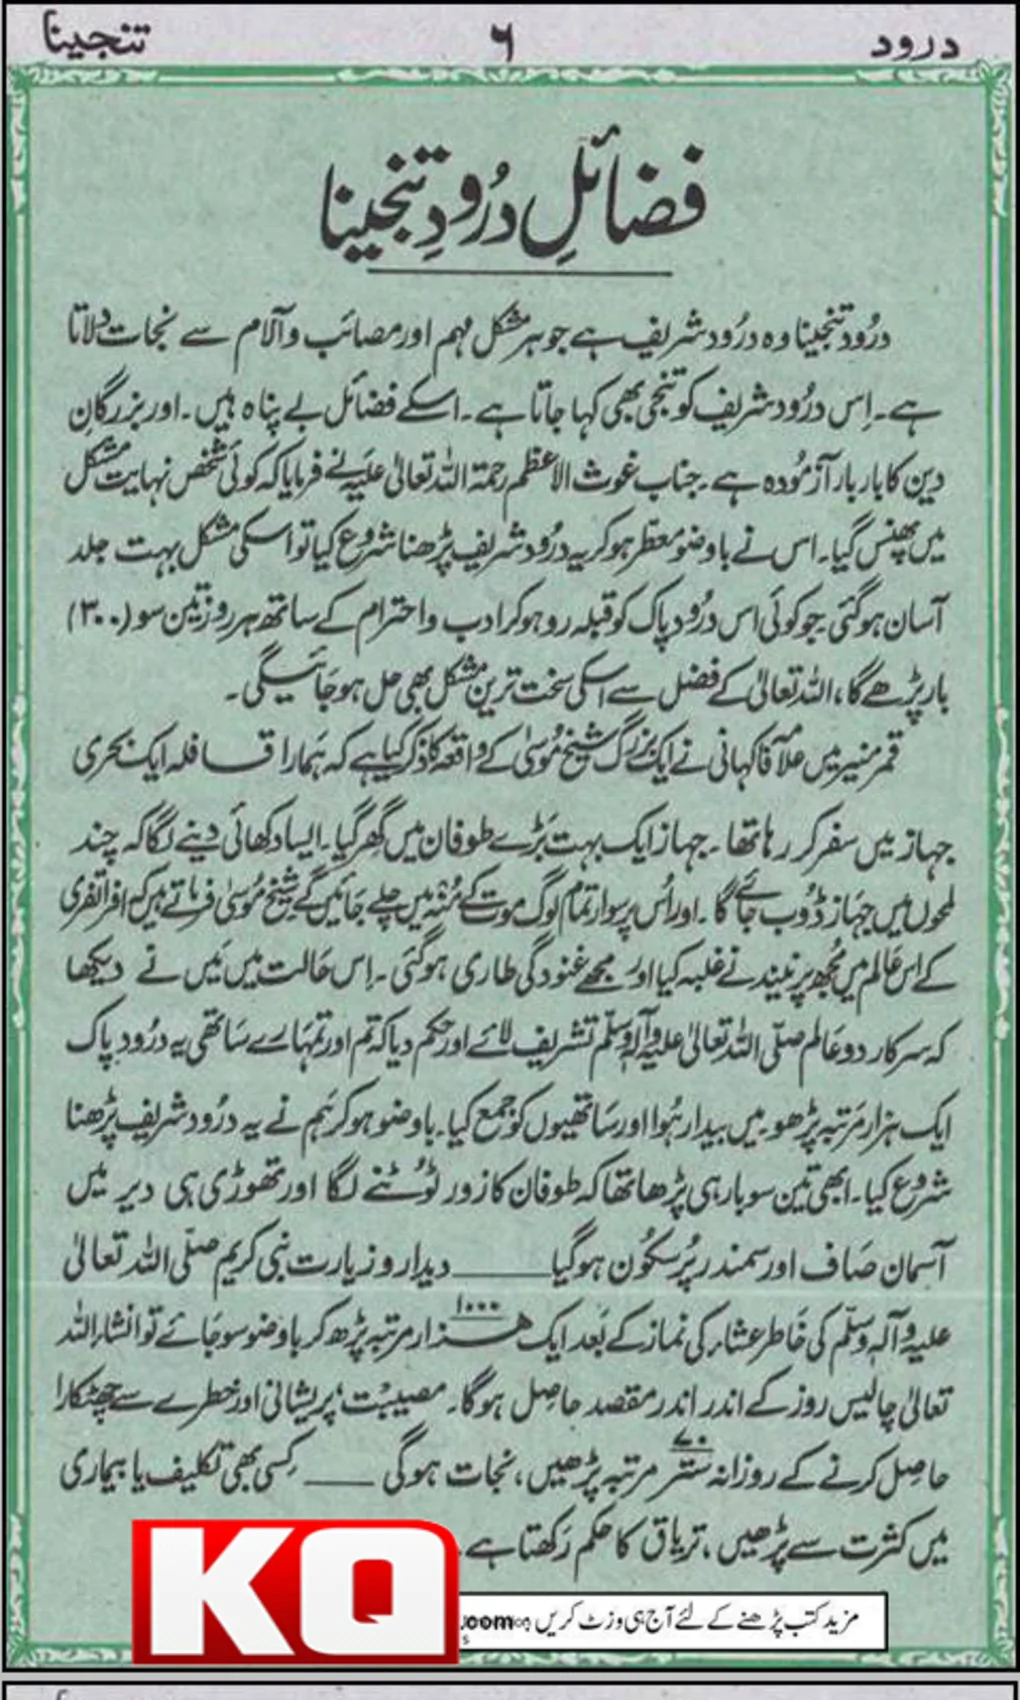 درود ۶ تنجینا
فضائلِ درُودِ تنجینا
درُودِ تنجینا وہ درُود شریف ہے جو ہر مشکل مہم اور مصائب و آلام سے نجات دلاتا
ہے۔ اِس درُود شریف کو تنجی بھی کہا جاتا ہے۔ اسکے فضائل بے پناہ ہیں۔ اور بزرگانِ
دین کا بار بار آزمُودہ ہے۔ جناب غوث الاعظم رحمۃ اللہ تعالیٰ علیہ نے فرمایا کہ کوئی شخص نہایت مشکل
میں پھنس گیا۔ اس نے باوضو معطّر ہو کر یہ درُود شریف پڑھنا شروع کیا تو اسکی مشکل بہت جلد
آسان ہو گئی۔ جو کوئی اس درُود پاک کو قبلہ رو ہو کر ادب و احترام کے ساتھ ہر روز تین سو (۳۰۰)
بار پڑھے گا، اللہ تعالیٰ کے فضل سے اسکی سخت ترین مشکل بھی حل ہو جائیگی۔
قمر منیر میں علامہ فاکہانی نے ایک بزرگ شیخ مُوسیٰ کے واقعہ کا ذکر کیا ہے کہ ہمارا قافلہ ایک بحری
جہاز میں سفر کر رہا تھا۔ جہاز ایک بہت بڑے طوفان میں گھر گیا۔ ایسا دکھائی دینے لگا کہ چند
لمحوں میں جہاز ڈوب جائے گا۔ اور اُس پر سوار تمام لوگ موت کے مُنہ میں چلے جائیں گے شیخ مُوسیٰ فرماتے ہیں کہ افراتفری
کے اس عالم میں مُجھ پر نیند نے غلبہ کیا اور مجھے غنودگی طاری ہو گئی۔ اِس حالت میں مَیں نے دیکھا
کہ سرکار دو عالم صلّی اللہ تعالیٰ علیہ وآلہٖ وسلّم تشریف لائے اور حکم دیا کہ تم اور تمہارے ساتھی یہ درُود پاک
ایک ہزار مرتبہ پڑھو۔ میں بیدار ہُوا اور ساتھیوں کو جمع کیا۔ باوضو ہو کر ہم نے یہ درُود شریف پڑھنا
شروع کیا۔ ابھی تین سو بار ہی پڑھا تھا کہ طوفان کا زور ٹوٹنے لگا اور تھوڑی ہی دیر میں
آسمان صاف اور سمندر پُر سکُون ہو گیا ــــــ دیدار و زیارت نبی کریم صلّی اللہ تعالیٰ
علیہ وآلہٖ وسلّم کی خاطر عشاء کی نماز کے بعد ایک ہزار ۱۰۰۰ مرتبہ پڑھ کر باوضو سو جائے تو انشاء اللہ
تعالیٰ چالیس روز کے اندر اندر مقصد حاصل ہوگا۔ مصیبت، پریشانی اور خطرے سے چھٹکارا
حاصل کرنے کے روزانہ ستر ۷۰ مرتبہ پڑھیں، نجات ہوگی ــــ کِسی بھی تکلیف یا بیماری
میں کثرت سے پڑھیں، تریاق کا حکم رکھتا ہے۔
KQ
مزید کتب پڑھنے کے لئے آج ہی وزٹ کریں : .com